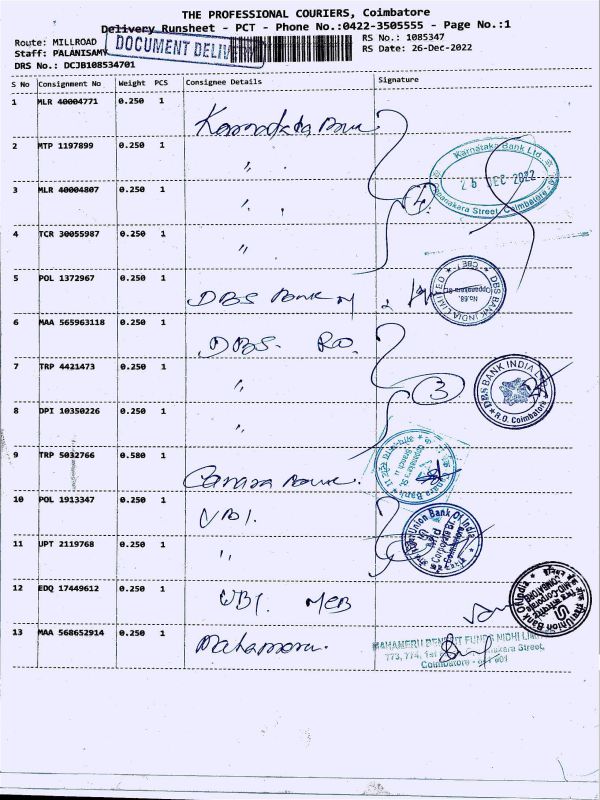 THE PROFESSIONAL COURIERS, Coimbatore
Delivery Runsheet - PCT - Phone No.:0422-3505555 - Page No.:1
Route: MILLROAD
RS No.: 1085347
Staff: PALANISAMY
DOCUMENT DELIVERY
RS Date: 26-Dec-2022
DRS No.: DCJB108534701
S No Consignment No Weight PCS Consignee Details Signature
1 MLR 40004771 0.250 1 Karnataka Bank
2 MTP 1197899 0.250 1 ,,
Karnataka Bank Ltd.
27 DEC 2022
Oppanakara Street, Coimbatore
3 MLR 40004807 0.250 1 ,,
4
4 TCR 30055987 0.250 1 ,,
5 POL 1372967 0.250 1 DBS Bank
DBS BANK INDIA LIMITED
No.68,
Oppanakara St.
CBE
6 MAA 565963118 0.250 1 DBS. RO.
7 TRP 4421473 0.250 1 ,,
3
DBS BANK INDIA LTD
R.O. Coimbatore
8 DPI 10350226 0.250 1 ,,
9 TRP 5032766 0.580 1 Canara Bank.
Canara Bank
10 POL 1913347 0.250 1 UBI.
Union Bank Of India
Corporate Br.
Coimbatore
11 UPT 2119768 0.250 1 ,,
12 EDQ 17449612 0.250 1 UBI MCB
Union Bank Of India
13 MAA 568652914 0.250 1 Mahameru.
MAHAMERU BENEFIT FUNDS NIDHI LIMITED
773, 774, 1st Oppanakara Street,
Coimbatore - 641 001